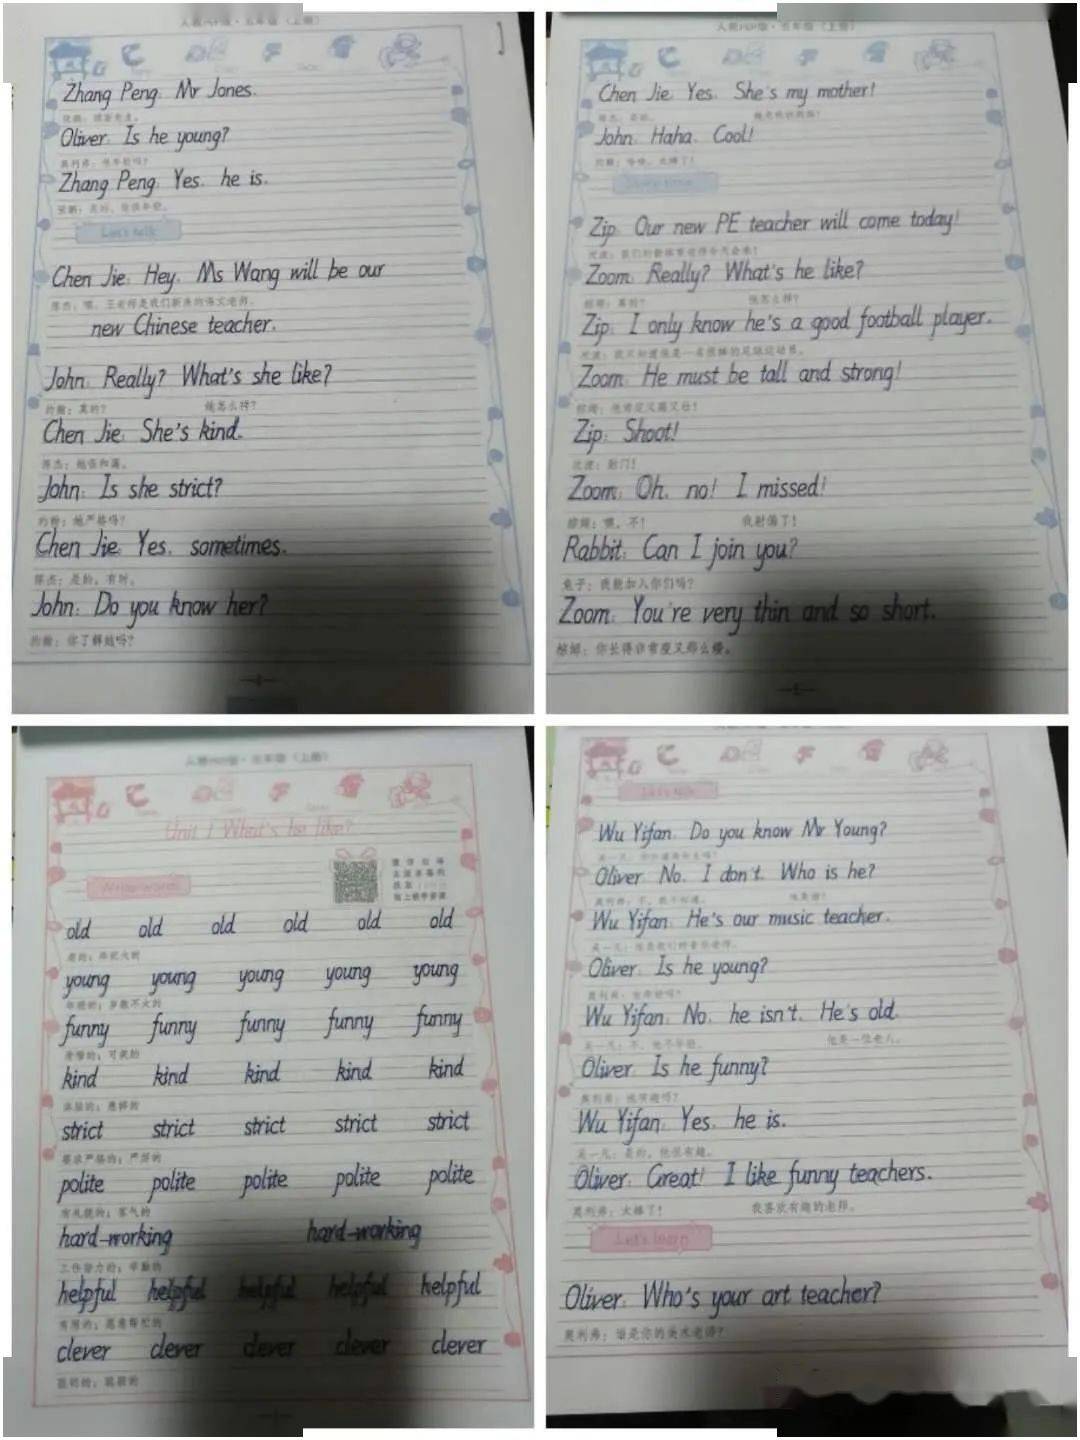 人教PEP版·五年级（上册）
Zhang Peng: Mr Jones.
张鹏：琼斯先生。
Oliver: Is he young?
奥利弗：他年轻吗？
Zhang Peng: Yes, he is.
张鹏：是的，他很年轻。
Let's talk
Chen Jie: Hey, Ms Wang will be our
陈杰：嘿，王老师是我们新来的语文老师。
new Chinese teacher.
John: Really? What's she like?
约翰：真的？ 她怎么样？
Chen Jie: She's kind.
陈杰：她很和蔼。
John: Is she strict?
约翰：她严格吗？
Chen Jie: Yes, sometimes.
陈杰：是的，有时。
John: Do you know her?
约翰：你了解她吗？
人教PEP版·五年级（上册）
Chen Jie: Yes. She's my mother!
陈杰：是的。 她是我的妈妈！
John: Haha. Cool!
约翰：哈哈，太棒了！
Zip: Our new PE teacher will come today!
Zoom: Really? What's he like?
祖姆：真的？ 他怎么样？
Zip: I only know he's a good football player.
Zoom: He must be tall and strong!
Zip: Shoot!
次波：射门！
Zoom: Oh, no! I missed!
祖姆：噢，不！ 我射偏了！
Rabbit: Can I join you?
兔子：我能加入你们吗？
Zoom: You're very thin and so short.
祖姆：你长得非常瘦又那么矮。
人教PEP版·五年级（上册）
Unit 1 What's he like?
Write words
old old old old old old
老的；年纪大的
young young young young young
年轻的；岁数不大的
funny funny funny funny funny
滑稽的；可笑的
kind kind kind kind kind
体贴的；慈祥的
strict strict strict strict strict
要求严格的；严厉的
polite polite polite polite polite
有礼貌的；客气的
hard-working hard-working
工作努力的；辛勤的
helpful helpful helpful helpful helpful
有用的；愿意帮忙的
clever clever clever clever clever
聪明的；聪颖的
Let's talk
Wu Yifan: Do you know Mr Young?
Oliver: No, I don't. Who is he?
Wu Yifan: He's our music teacher.
吴一凡：他是我们的音乐老师。
Oliver: Is he young?
奥利弗：他年轻吗？
Wu Yifan: No, he isn't. He's old.
吴一凡：不，他不年轻。 他是一位老人。
Oliver: Is he funny?
奥利弗：他滑稽吗？
Wu Yifan: Yes, he is.
吴一凡：是的，他很有趣。
Oliver: Great! I like funny teachers.
奥利弗：太棒了！ 我喜欢有趣的老师。
Let's learn
Oliver: Who's your art teacher?
奥利弗：谁是你的美术老师？